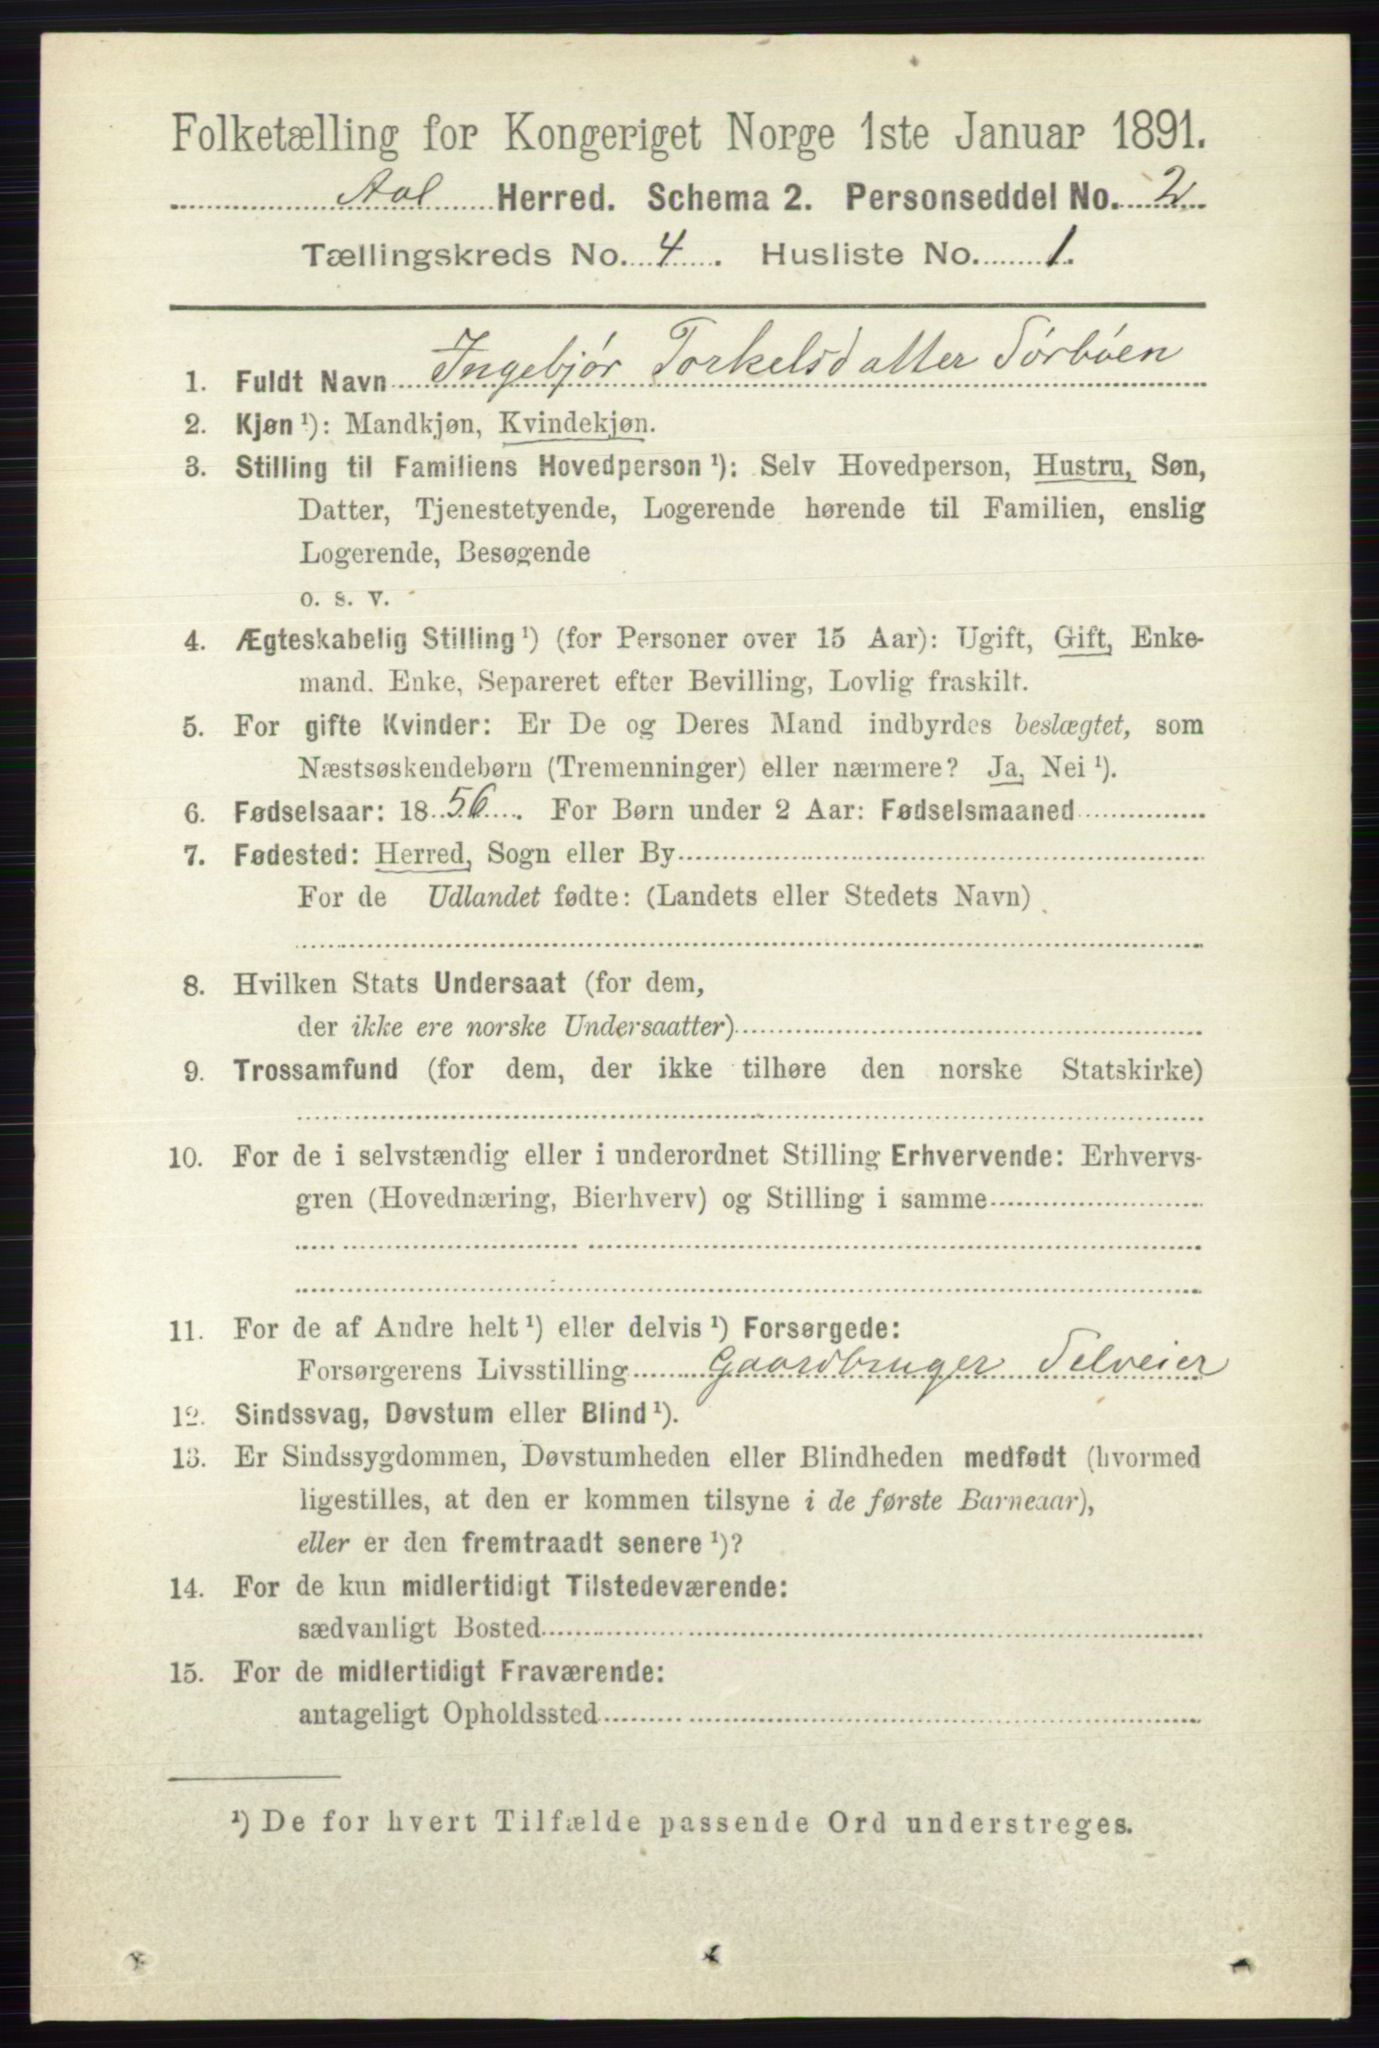 Folketælling for Kongeriget Norge 1ste Januar 1891.
Aal Herred. Schema 2. Personseddel No. 2
Tællingskreds No. 4. Husliste No. 1.
1. Fuldt Navn Ingebjør Torkelsdatter Sørbøen
2. Kjøn ¹): Mandkjøn, Kvindekjøn.
3. Stilling til Familiens Hovedperson ¹): Selv Hovedperson, Hustru, Søn,
Datter, Tjenestetyende, Logerende hørende til Familien, enslig
Logerende, Besøgende
o. s. v.
4. Ægteskabelig Stilling ¹) (for Personer over 15 Aar): Ugift, Gift, Enke-
mand. Enke, Separeret efter Bevilling, Lovlig fraskilt.
5. For gifte Kvinder: Er De og Deres Mand indbyrdes beslægtet, som
Næstsøskendebørn (Tremenninger) eller nærmere? Ja, Nei ¹).
6. Fødselsaar: 1856. For Børn under 2 Aar: Fødselsmaaned
7. Fødested: Herred, Sogn eller By
For de Udlandet fødte: (Landets eller Stedets Navn)
8. Hvilken Stats Undersaat (for dem,
der ikke ere norske Undersaatter)
9. Trossamfund (for dem, der ikke tilhøre den norske Statskirke)
10. For de i selvstændig eller i underordnet Stilling Erhvervende: Erhvervs-
gren (Hovednæring, Bierhverv) og Stilling i samme
11. For de af Andre helt ¹) eller delvis ¹) Forsørgede:
Forsørgerens Livsstilling Gaardbruger Selveier
12. Sindssvag, Døvstum eller Blind ¹).
13. Er Sindssygdommen, Døvstumheden eller Blindheden medfødt (hvormed
ligestilles, at den er kommen tilsyne i de første Barneaar),
eller er den fremtraadt senere ¹)?
14. For de kun midlertidigt Tilstedeværende:
sædvanligt Bosted
15. For de midlertidigt Fraværende:
antageligt Opholdssted
¹) De for hvert Tilfælde passende Ord understreges.